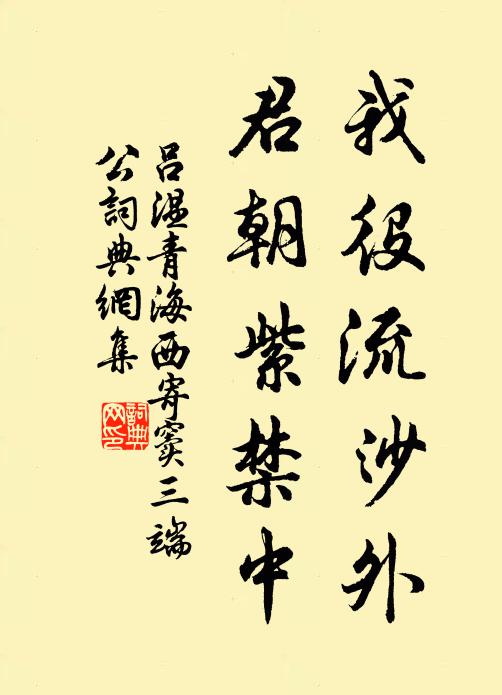 我役流沙外
君朝紫禁中
呂溫青海西寄竇三端
公詞典網集
詞典
网印